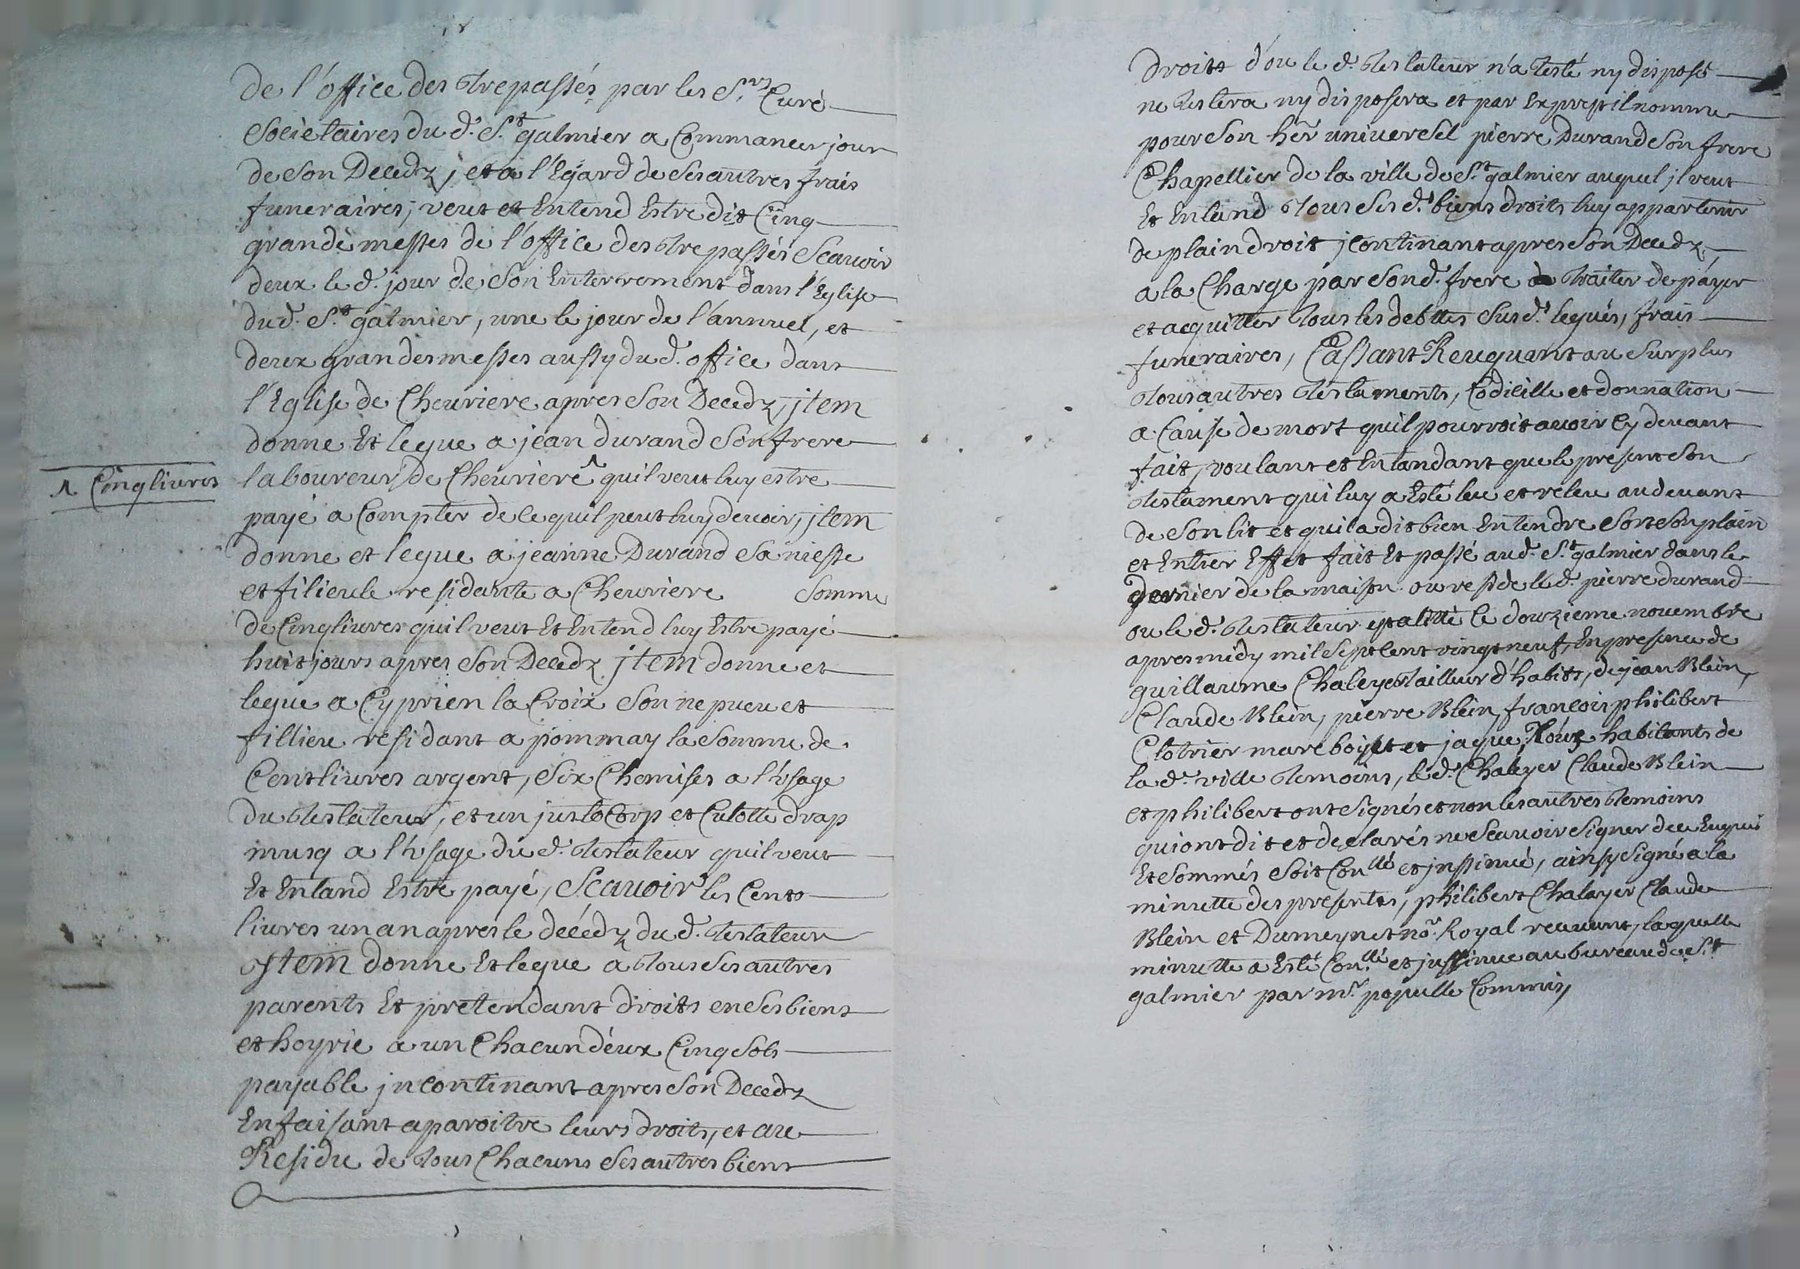 de l'office des trepassés par les S.rs Curé
Societaires du d. S.t galmier a Commancer jour
de son Decedz, et a l'Egard de ses autres frais
funeraires, veut et Entend Estre dit Cinq
grande messes de l'office des trepassés Scavoir
deux le d. jour de son Enterrement dans l'Eglise
du d. S.t galmier, une le jour de l'annuel, et
deux grandes messes aussy du d. office dans
l'Eglise de Cheuriere apres son Decedz, jtem
donne Et legue a jean durand son frere
laboureur de Cheuriere ^ quil veut luy estre
^ Cinq livres
payé a Compter de ce quil peut luy devoir, jtem
donne et legue a jeanne Durand sa niesse
et filieule residante a Cheuriere Somme
de Cinq livres quil veut Et Entend luy Estre payé
huit jours apres son Decedz jtem donne et
legue a Cyprien la Croix son nepueu et
fillieu residant a pommay la somme de
Cent livres argent, six Chemises a l'Usage
du testateur, et un justocorp et Culotte drap
musq a l'Usage du d. testateur quil veut
Et Entand Estre payé, Scauoir les Cents
livres un an apres le décédz du d. testateur
jtem donne Et legue a tous ses autres
parents Et pretendant droits en ses biens
et hoyrie a un Chacun d'eux Cinq sols
payable jncontinant apres son Decedz
En faisant aparoitre leurs droits, et au
Residu de tous Chacuns ses autres biens
droits d'ou le d. testateur n'a testé ny disposé
ne testera ny disposera et par Exprest il nomme
pour son her universel pierre Durand son frere
Chapellier de la ville de S.t galmier auquel jl veut
Et Entand tous ses d. biens droits luy appartenir
de plain droit jcontinant apres son Decedz,
a la Charge par son d. frere traiter de payer
et acquitter tous les debttes susd. legués, frais
funeraires, Cassant Reuquant au surplus
tous autres testaments, Codicille et donnation
a Cause de mort quil pourroit auoir Cy deuant
fait, voulant et Entandant que le present son
testament qui luy a Esté leu et releu au deuant
de son lit et quil a dit bien Entendre sorte son plain
et Entier Effet fait Et passé au d. S.t galmier dans le
grenier de la maison ou reside le d. pierre durand
ou le d. testateur est alitté le douzieme novembre
apres midy mil sept cent vingt neuf, En presence de
guillaume Chaleyer tailleur d'habits, de jean Blein,
Claude Blein, pierre Blein, francois philibert
Clotrier et jaque habitants de
la d. ville temoins, le d. Chaleyer Claude Blein
et philibert ont signés et non les autres temoins
qui ont dit et declarés ne Scauoir signer de ce Enquis
Et Sommés soit Con.llé et jnsinué, ainsy signé a la
minutte des presentes, philibert Chalayer Claude
Blein et Dumeynet no.re Royal recevant, laquelle
minutte a Esté Con.llé et jnsinue au bureau de S.t
galmier par m.r populle Commis